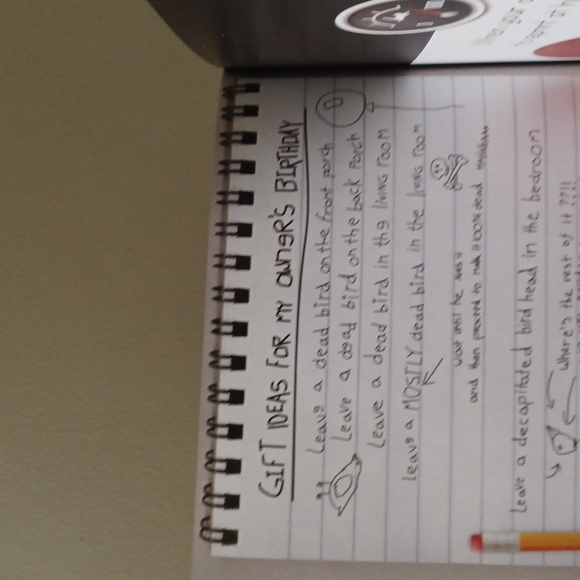 When your
GIFT IDEAS FOR MY OWNER'S BIRTHDAY
Leave a dead bird on the front porch
Leave a dead bird on the back porch
Leave a dead bird in the living room
Leave a MOSTLY dead bird in the living room
wait until he sees it
and then proceed to make it 100% dead
Leave a decapitated bird head in the bedroom
where's the rest of it ??!!